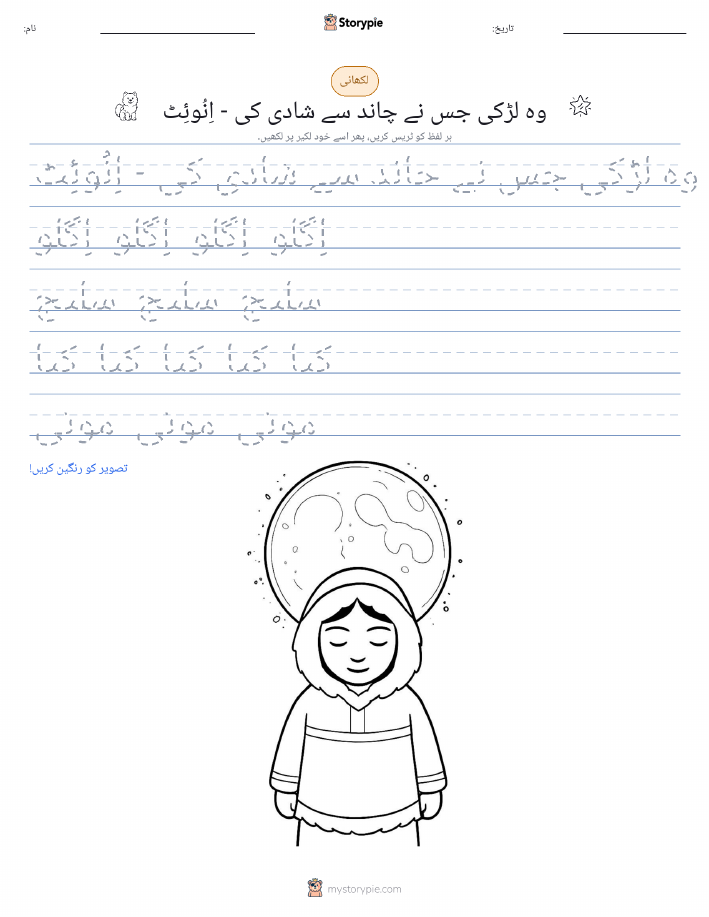 نام:
Storypie
تاریخ:
لکھائی
وہ لڑکی جس نے چاند سے شادی کی - اِنُوئِٹ
ہر لفظ کو ٹریس کریں، پھر اسے خود لکیر پر لکھیں۔
وہ لڑکی جس نے چاند سے شادی کی - اِنُوئِٹ
اِگلُو اِگلُو اِگلُو اِگلُو
سلیج سلیج سلیج
کتا کتا کتا کتا کتا
موتی موتی موتی
تصویر کو رنگین کریں!
mystorypie.com